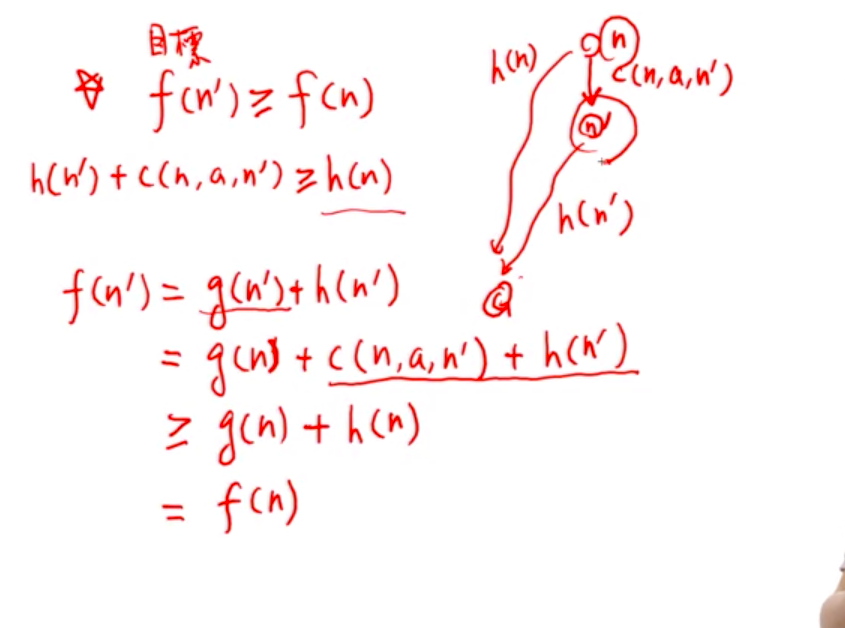 目標
☆ f(n') ≥ f(n)
h(n') + c(n, a, n') ≥ h(n)
f(n') = g(n') + h(n')
= g(n) + c(n, a, n') + h(n')
≥ g(n) + h(n)
= f(n)
n
h(n)
c(n, a, n')
n'
h(n')
G